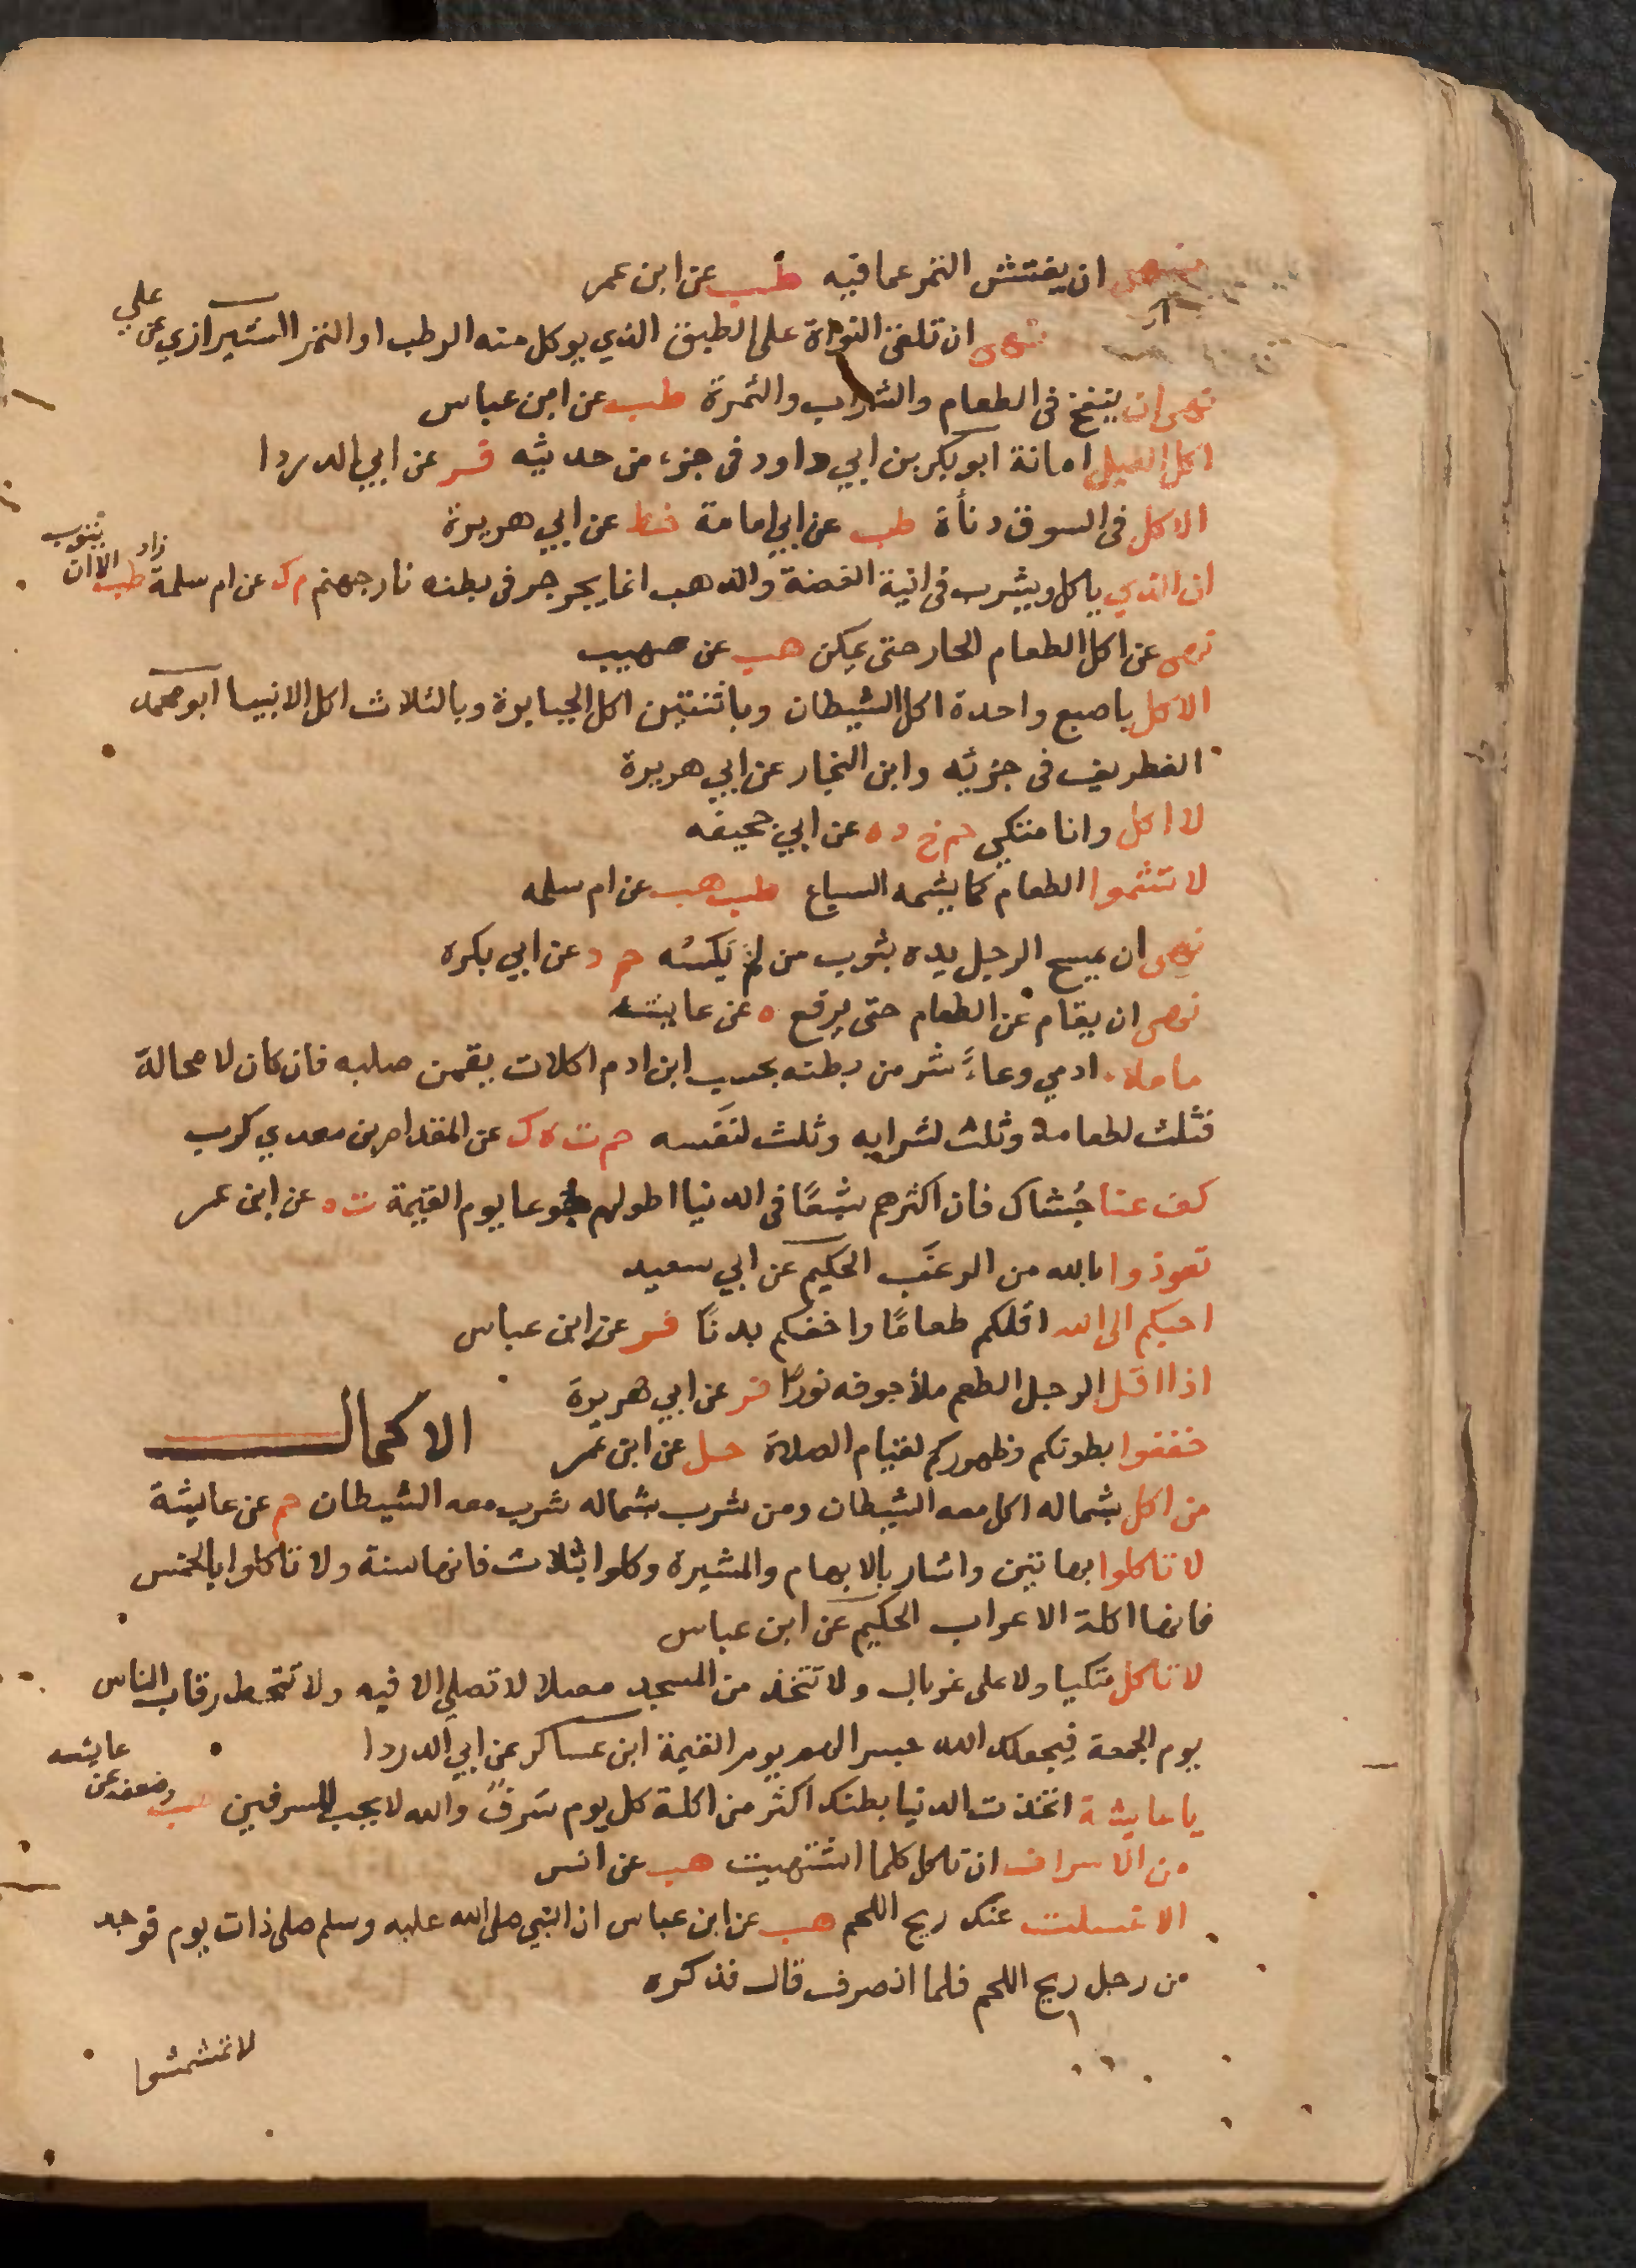 نهى ان يفتش التمر عما فيه طب عن ابن عمر
نهى ان تلقى النواة على الطبق الذي يوكل منه الرطب او التمر الشيرازي عن علي
نهى ان ينفخ فى الطعام والشراب والثمرة طب عن ابن عباس
اكل الليل امانة ابو بكر بن ابي داود فى جزء من حديثه فر عن ابي الدردا
الاكل فى السوق دنأة طب عن ابي امامة خط عن ابي هريرة
ان الذي ياكل ويشرب فى انية الفضة والذهب انما يجرجر فى بطنه نار جهنم م ك عن ام سلمة زاد طب الا ان يتوب
نهى عن اكل الطعام الحار حتى يمكن هب عن صهيب
الاكل باصبع واحدة اكل الشيطان وباثنتين اكل الجبابرة وبالثلاث اكل الانبيا ابو محمد
الغطريف فى جزئه وابن النجار عن ابي هريرة
لا اكل وانا متكي حم خ د ه عن ابي جحيفه
لا تشموا الطعام كما يشمه السباع طب هب عن ام سلمه
نهى ان يمسح الرجل يده بثوب من لم يَكسُه حم د عن ابي بكره
نهى ان يقام عن الطعام حتى يرفع ه عن عايشه
ما ملاء ادمي وعاءً شر من بطنه بحسب ابن ادم اكلات يقمن صلبه فان كان لا محالة
فثلث لطعامه وثلث لشرابه وثلث لنَفَسه حم ت ه ك عن المقدام بن معدي كرب
كف عنا جُشاك فان اكثرهم شبعًا فى الدنيا اطولهم جوعا يوم القيمة ت ه عن ابن عمر
تعوذوا بالله من الرغَب الحكيم عن ابي سعيد
احبكم الى الله اقلكم طعامًا واخفكم بدنًا فر عن ابن عباس
اذا اقل الرجل الطعم ملأ جوفه نورًا فر عن ابي هريرة
خففوا بطونكم وظهوركم لقيام الصلاة حل عن ابن عمر الاكمال
من اكل بشماله اكل معه الشيطان ومن شرب بشماله شرب معه الشيطان حم عن عايشة
لا تاكلوا بهاتين واشار بالابهام والمشيرة وكلوا بثلاث فانها سنة ولا تاكلوا بالخمس
فانها اكلة الاعراب الحكيم عن ابن عباس
لا تاكل متكيا ولا على غربال ولا تتخذ من المسجد مصلا لا تصلي الا فيه ولا تتخط رقاب الناس
يوم الجمعة فيجعلك الله جسرا لهم يوم القيمة ابن عساكر عن ابي الدردا
يا عايشة اتخذت الدنيا بطنك اكثر من اكلة كل يوم سَرفٌ والله لا يحب المسرفين هب وضعفه عن عايشه
من الاسراف ان تاكل كلما اشتهيت هب عن انس
الا غسلت عنك ريح اللحم هب عن ابن عباس ان النبي صلى الله عليه وسلم صلى ذات يوم فوجد
من رجل ريح اللحم فلما انصرف قال فذكره